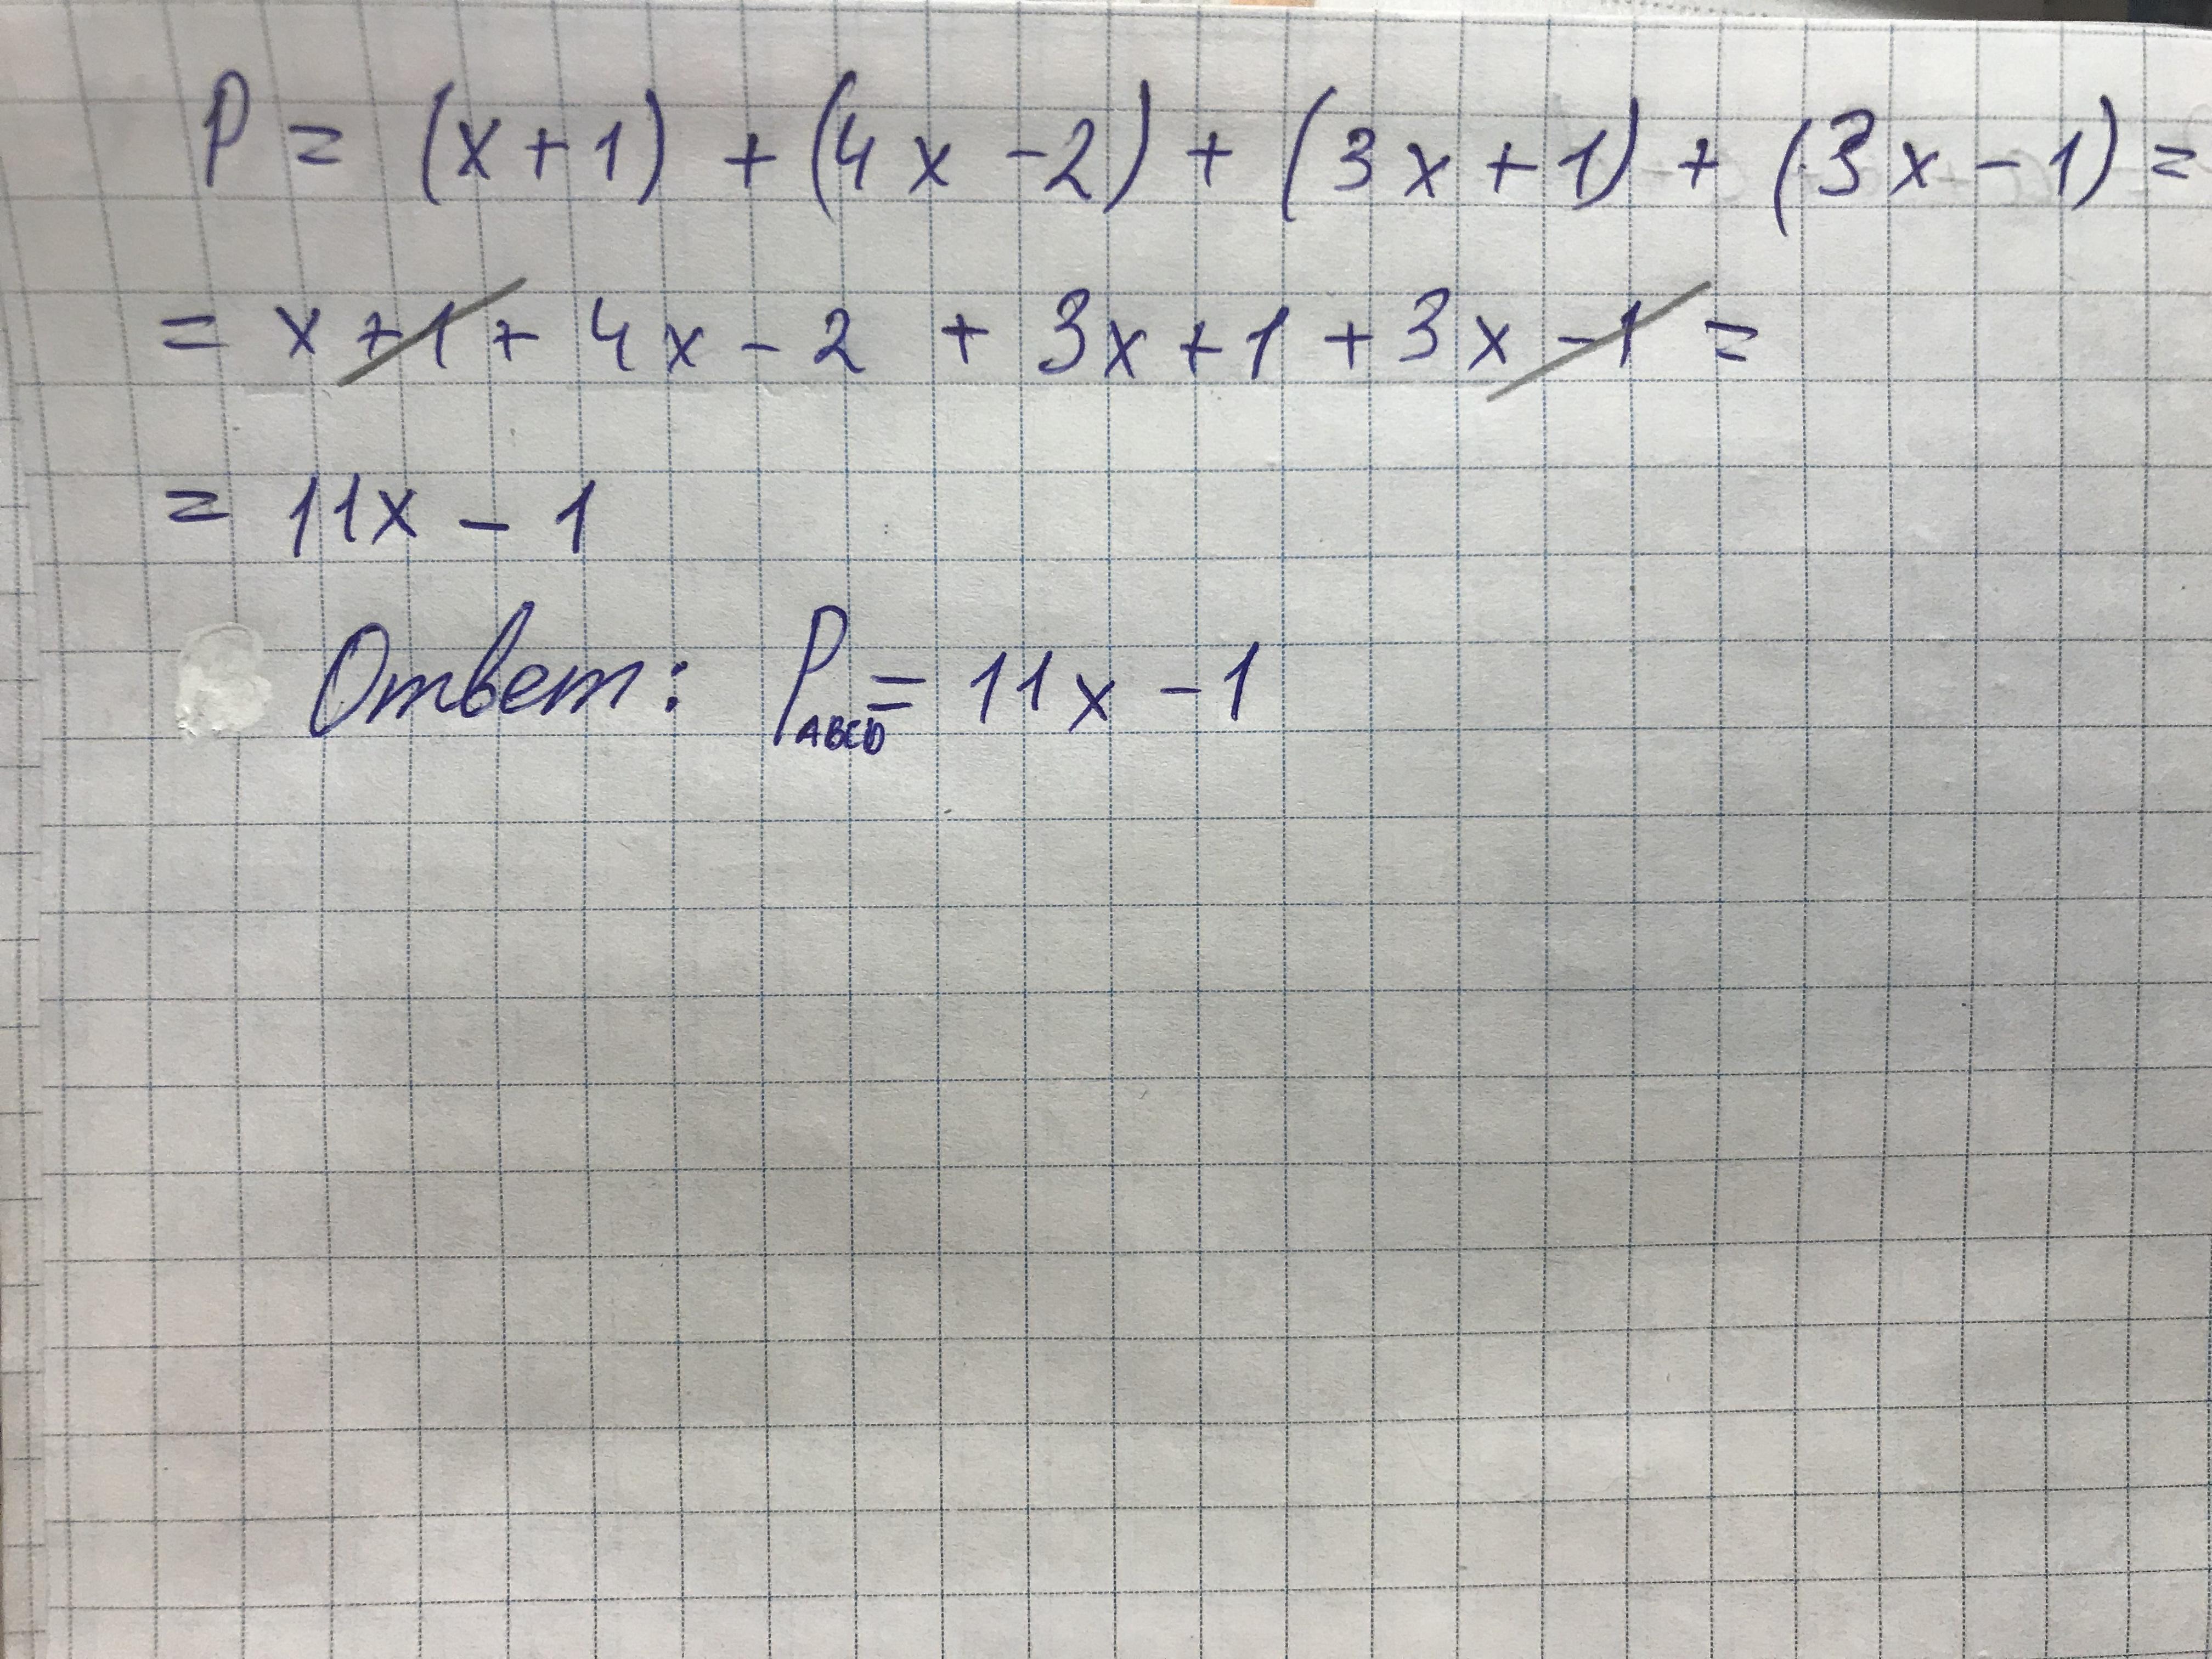 P = (x+1) + (4x-2) + (3x+1) + (3x-1) =
= x+1+ 4x-2 + 3x+1+3x-1 =
= 11x-1
Ответ: P ABCD = 11x-1